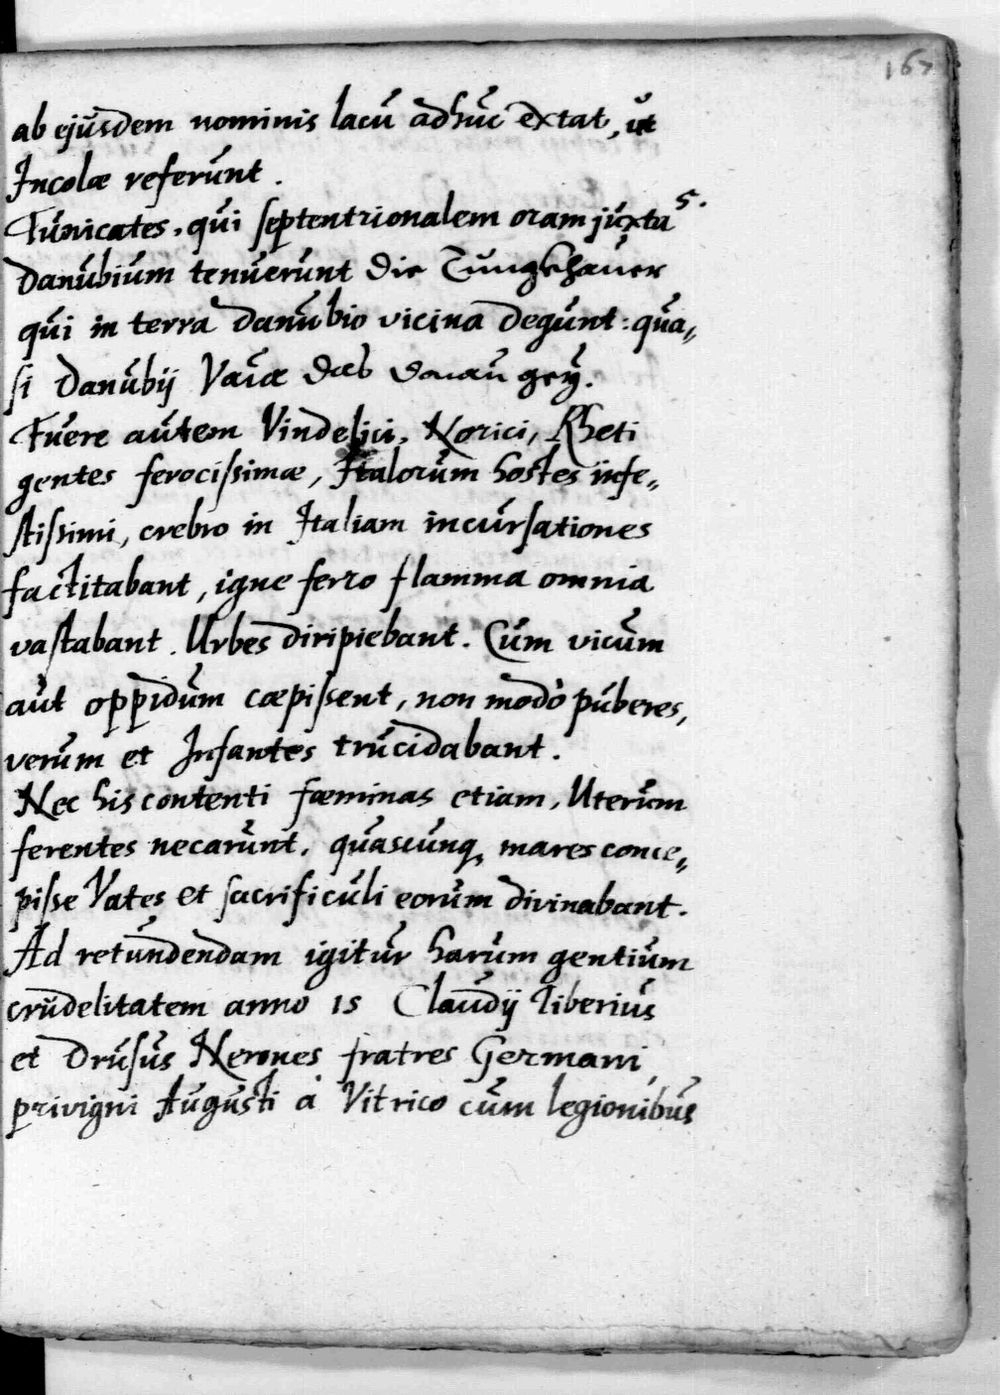 167
ab ejusdem nominis lacu adhuc extat, ut
Incolæ referunt.
5.
Tunicates, qui septentrionalem oram juxta
Danubium tenuerunt die Tungkhauer
qui in terra Danubio vicina degunt: qua„
si Danubij Vaiæ das Donau gey.
Fuere autem Vindelici, Norici, Rheti
gentes ferocissimæ, Italorum hostes infe„
stissimi, crebro in Italiam incursationes
factitabant, igne ferro flamma omnia
vastabant. Urbes diripiebant. Cum vicum
aut oppidum cæpissent, non modò puberes,
verum et Infantes trucidabant.
Nec his contenti fæminas etiam, Uterum
ferentes necarunt, quascunq, mares conce„
pisse Vates et sacrificuli eorum divinabant.
Ad retundendam igitur harum gentium
crudelitatem anno 15 Claudij Tiberius
et Drusus Nerones fratres Germani,
privigni Augusti à Vitrico cum legionibus